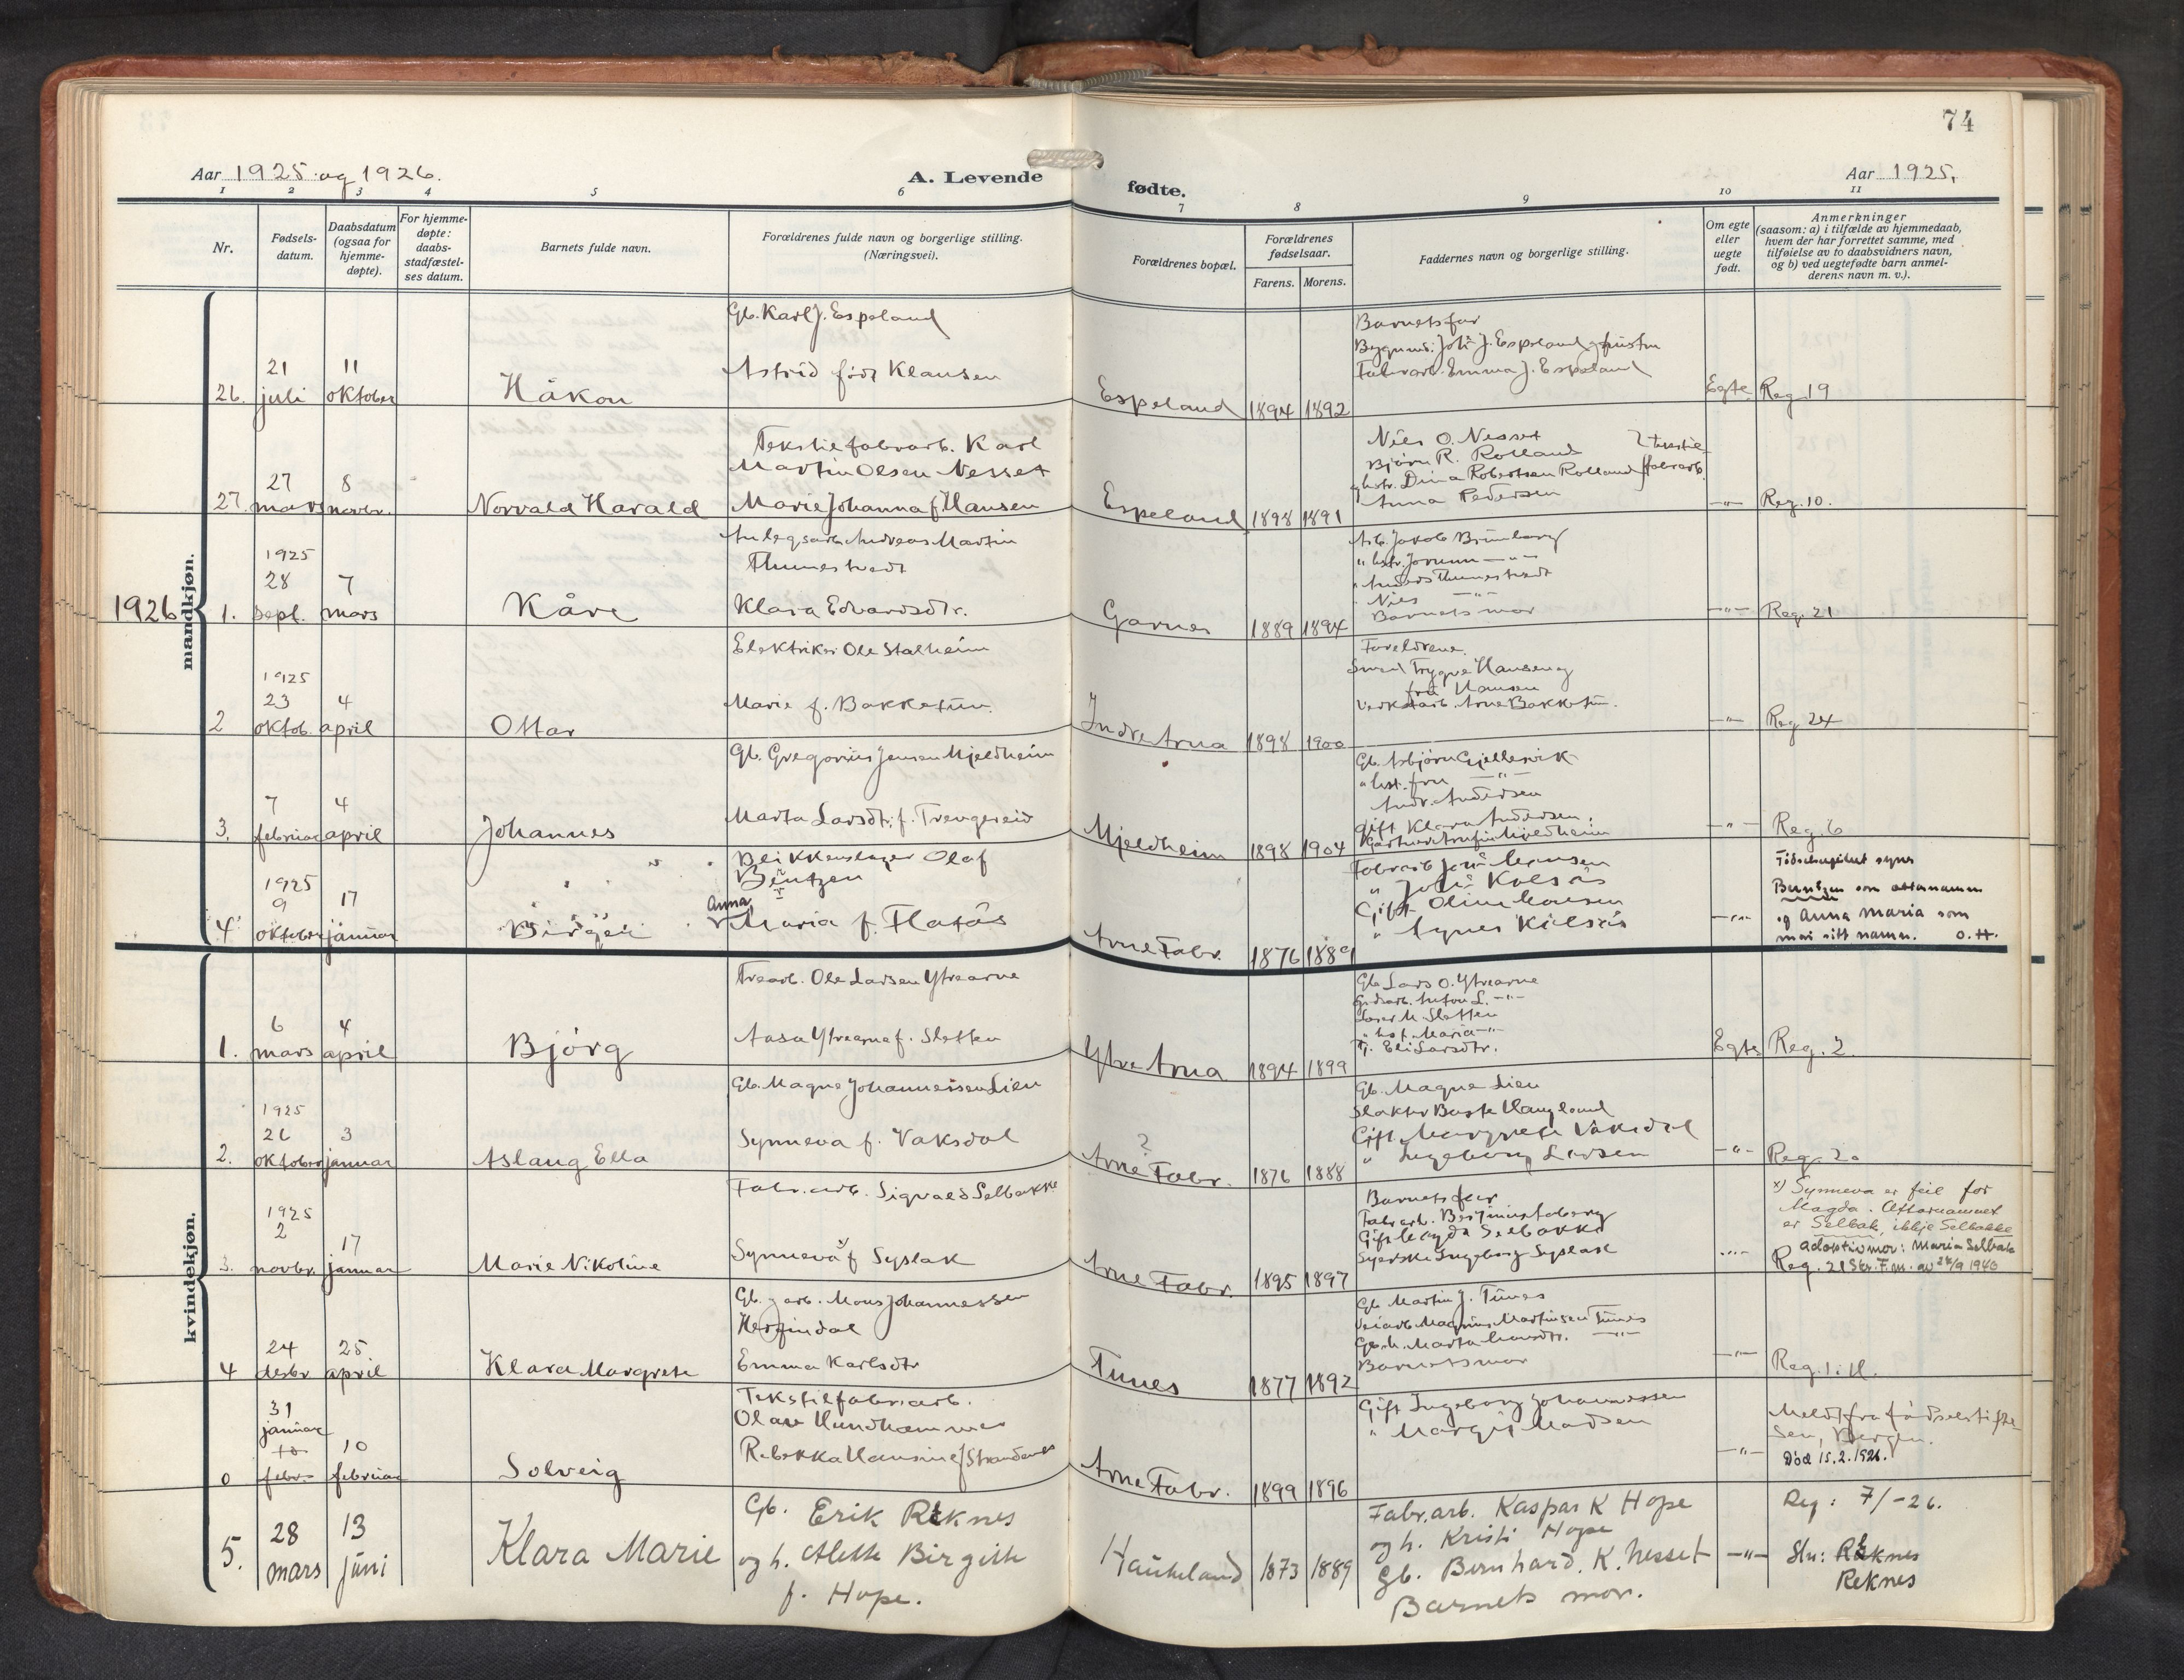 74
Aar 1925 og 1926.
A. Levende
fødte.
Aar 1925.
1 2 3 4 5 6 7 8 9 10 11
Nr.
Fødsels-
datum.
Daabsdatum
(ogsaa for
hjemme-
døpte).
For hjemme-
døpte:
daabs-
stadfæstel-
ses datum.
Barnets fulde navn.
Forældrenes fulde navn og borgerlige stilling.
(Næringsvei).
Forældrenes bopæl.
Forældrenes
fødselsaar.
Farens. Morens.
Faddernes navn og borgerlige stilling.
Om egte
eller
uegte
født.
Anmerkninger
(saasom: a) i tilfælde av hjemmedaab,
hvem der har forrettet samme, med
tilføielse av to daabsvidners navn,
og b) ved uegtefødte barn anmel-
derens navn m. v.).
mandkjøn.
26. 21 juli
11 oktober
Håkon
Gb. Karl J. Espeland
Astrid født Klausen
Espeland 1894 1892
Barnets far
Joh. J. Espeland
Fabrarb. Emma J. Espeland
Egte Reg. 19
27. 27 mars
8 novbr.
Norvald Harald
Tekstilfabrarb. Karl
Martin Olsen Nesset
Marie Johanna f. Hansen
Espeland 1898 1891
Nils O. Nesset
Bjørn R. Rolland
hstr. Dina Robertsen Rolland
Anna Pedersen
-"- Reg. 10.
1926
1. 1925
28 sept.
7 mars
Kåre
Anlegsarb. Andreas Martin
Thunestvedt
Klara Edvardsdtr.
Garnes 1889 1894
Arb. Jakob Brimborg
" hstr. Jorunn -"-
" Anders Thunestvedt
" Nils -"-
Barnets mor
-"- Reg. 21
2 1925
23 oktob.
4 april
Ottar
Elektriker Ole Stalheim
Marie f. Bakketun.
Indre Arna 1898 1900
Foreldrene.
Smed Trygve Hansen og
fru Hansen
Verkstarb. Arne Bakketun.
-"- Reg 24
3. 7 februar
4 april
Johannes
Gb. Gregorius Jensen Mjeldheim
Marta Larsdtr. f. Trengereid
Mjeldheim 1898 1904
Gb. Asbjørn Gjellesvik
" hst. fru -"-
Andr. Andersen
Gift Klara Andersen.
-"- Reg. 6
4 1925
9 oktober
17 januar
Birger
Blikkenslager Olaf
Bentzen
Anna
Maria f. Flatås
Arne Fabr. 1876 1889
Fabrarb. Hansen
Gift Oline Hansen
" Agnes
-"- Bentzen som etternamn
og Anna Maria som
mor sitt namn. O.H.
kvindekjøn.
1. 6 mars
4 april
Bjørg
Trearb. Ole Larsen Ytrearne
Aasa Ytrearne f. Sletten
Ytre Arna 1894 1899
Gb. Lars O. Ytrearne
Anton L. -"-
Lars M. Sletten
" hst. Maria -"-
Pi. Eli Larsdtr.
Egte Reg. 2.
2. 1925
26 oktober
3 januar
Aslaug Ella
Gb. Magne Johannessen Lien
Synneva f. Vaksdal
?
Arne Fabr. 1876 1888
Gb. Magne Lien
Slakter Baste Haugland
Gift Margrete Vaksdal
" Ingeborg Larsen
-"- Reg. 20
3. 1925
2 novbr.
17 januar
Marie Nikoline
Fabr.arb. Sigvald Selbakke
Synneva x) f. Syslak
Arne Fabr. 1895 1897
Barnets far
Fabrarb. Benjamin
Gift Magda Selbakke
Syerske Ingeborg Syslak
-"- x) Synneva er feil for
Magda. Etternamnet
er Selbak, ikkje Selbakke
Adoptivmor: Maria Selbak
Reg. 21 Skr. F.m. av 24/9 1940
4 24 desbr
25 april
Klara Margrete
Gb. og arb. Mons Johannessen
Herfindal
Emma Karlsdtr
Tunes 1877 1892
Gb. Martin J. Tunes
Veiarb. Magnus Martinsen Tunes
Gb.h. Marta Hansdtr. -"-
Barnets mor
-"- Reg. 1. H.
0 31 januar
febr.
10 februar
Solveig
Tekstilfabrarb.
Olav Hundhammer
Rebekka Hansine f. Strandenes
Arne Fabr. 1899 1896
Gift Ingeborg Johannessen
" Margit Madsen
-"- Meldt fra fødselstiftel-
sen, Bergen.
Død 15.2.1926.
5. 28 mars
13 juni
Klara Marie
Gb. Erik Reknes
og h. Alette Birgitte
f. Hope.
Haukeland 1873 1889
Fabr.arb. Kaspar K Hope
og h. Kristi Hope
Gb. Bernhard. K. Nesset
Barnets mor.
-"- Reg: 7/-26.
Sln: Reknes
Reknes